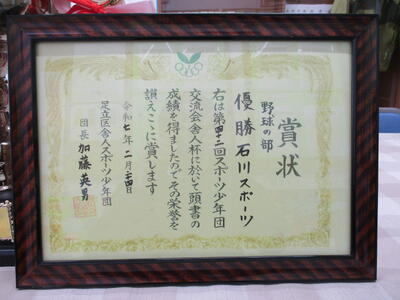 賞状
野球の部
優勝 石川スポーツ
右は第四十二回スポーツ少年団
交流会舎人杯に於いて頭書の
成績を得ましたのでその栄誉を
讃えここに賞します
令和七年二月二十四日
足立区舎人スポーツ少年団
団長 加藤英男